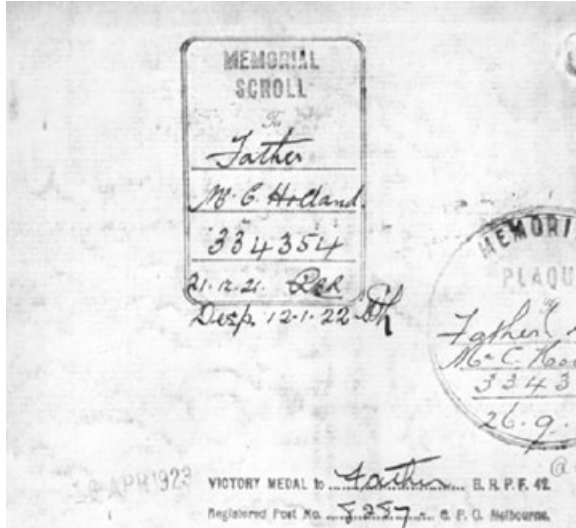 MEMORIAL
SCROLL
To
Father
Mr C. Holland.
334354
21.12.21.
Desp. 12.1.22
MEMORI
PLAQU
Father
Mr C. Ho
3343
26.9.
APR 1923
VICTORY MEDAL to Father B. R. P. F. 42.
Registered Post No. 8287 G. P. O. Melbourne.